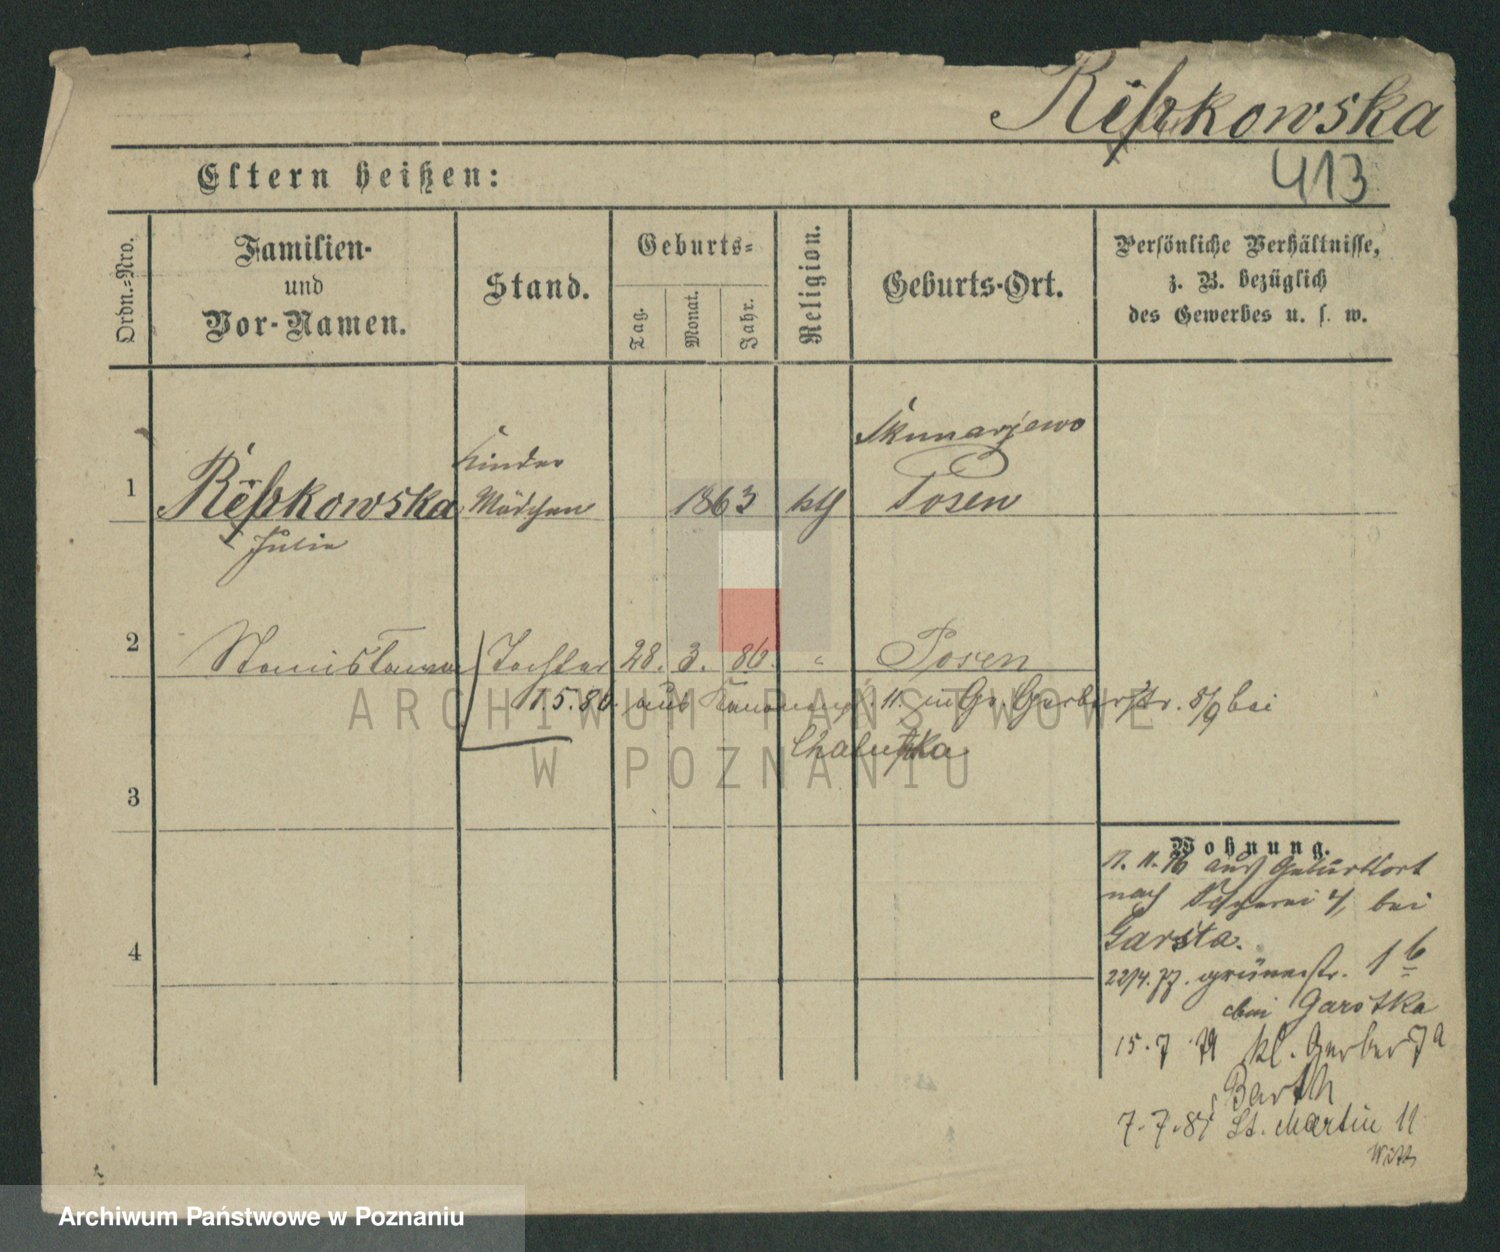 Rĕßkowska
413
Eltern heißen:
Ordn.-Nro.
Familien-
und
Vor-Namen.
Stand.
Geburts-
Tag.
Monat.
Jahr.
Religion.
Geburts-Ort.
Persönliche Verhältnisse,
z. B. bezüglich
des Gewerbes u. s. w.
1
Rĕßkowska
Julie
Kinder
Mädchen
1863
kth
Posen
2
Stanislawa
Tochter
28. 3. 86.
"
Posen
1.5.86. aus 11. in Gr. Gerberstr. 8/9 bei
3
4
Wohnung.
11. 11. 76 aus Geburtsort
nach 4, bei
Garska.
22/4. 77. grünestr. 1 b
bei Garstka
15. 7. 79 kl. Gerber 7a
Barth
7. 7. 81 St. Martin 11
Witt
ARCHIWUM PAŃSTWOWE
W POZNANIU
Archiwum Państwowe w Poznaniu